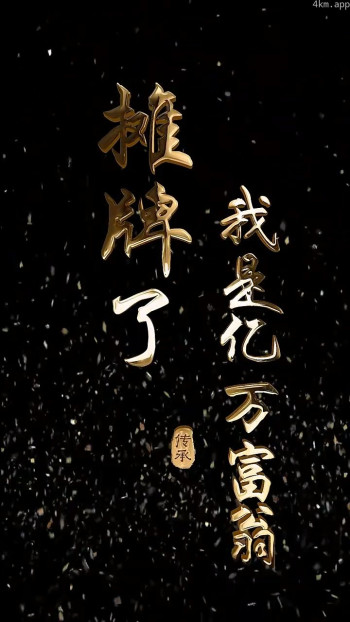 4km.app
摊牌了
我是亿万富翁
传承